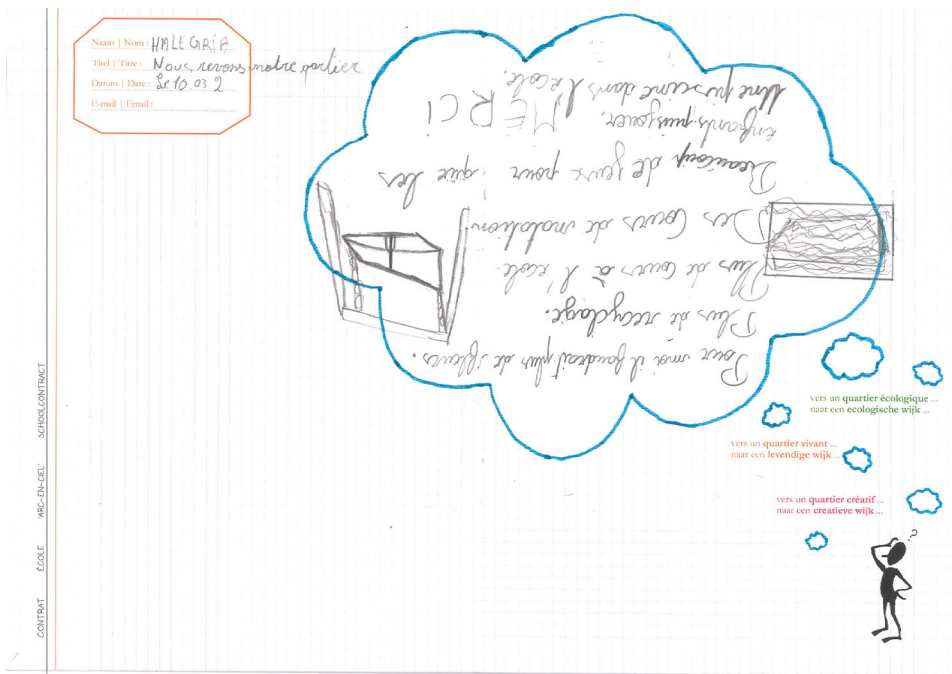 Naam | Nom : HALEGRIA
Titel | Titre : Nous revons notre qartier
Datum | Date : Le 10 03 2
E-mail | Email :
Pour moi il faudrait plus de fleurs.
Plus de recyclage.
Plus de cours à l'école.
Des Cours de natation.
Beaucoup de jeux pour que les
enfants puis jouer. MERCi
Une piscine dans l'école.
vers un quartier écologique ...
naar een ecologische wijk ...
vers un quartier vivant ...
naar een levendige wijk ...
vers un quartier créatif ...
naar een creatieve wijk ...
?
CONTRAT ÉCOLE 'ARC-EN-CIEL' SCHOOLCONTRACT